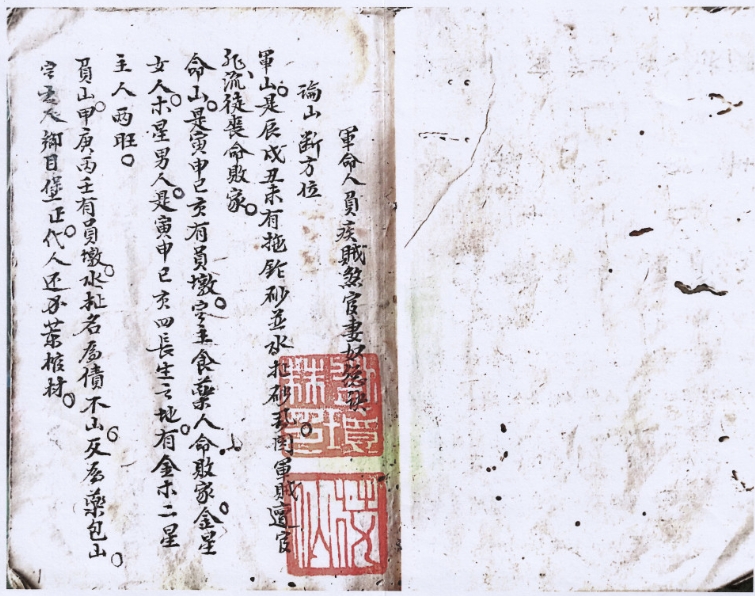 軍命人員疾賊煞官妻妒絕訣
論山斷方位
軍山是辰戌丑未有拖鎗砂並水扯砂現閗軍賊遭官
死流徒喪命敗家
命山是寅申巳亥有員墩定主食藥人命敗家金星
女人木星男人是寅申巳亥四長生之地有金木二星
主人両旺
員山甲庚丙壬有員墩水扯名為債不山反為藥包山
定主人鄉目堡正代人还不葉棺材